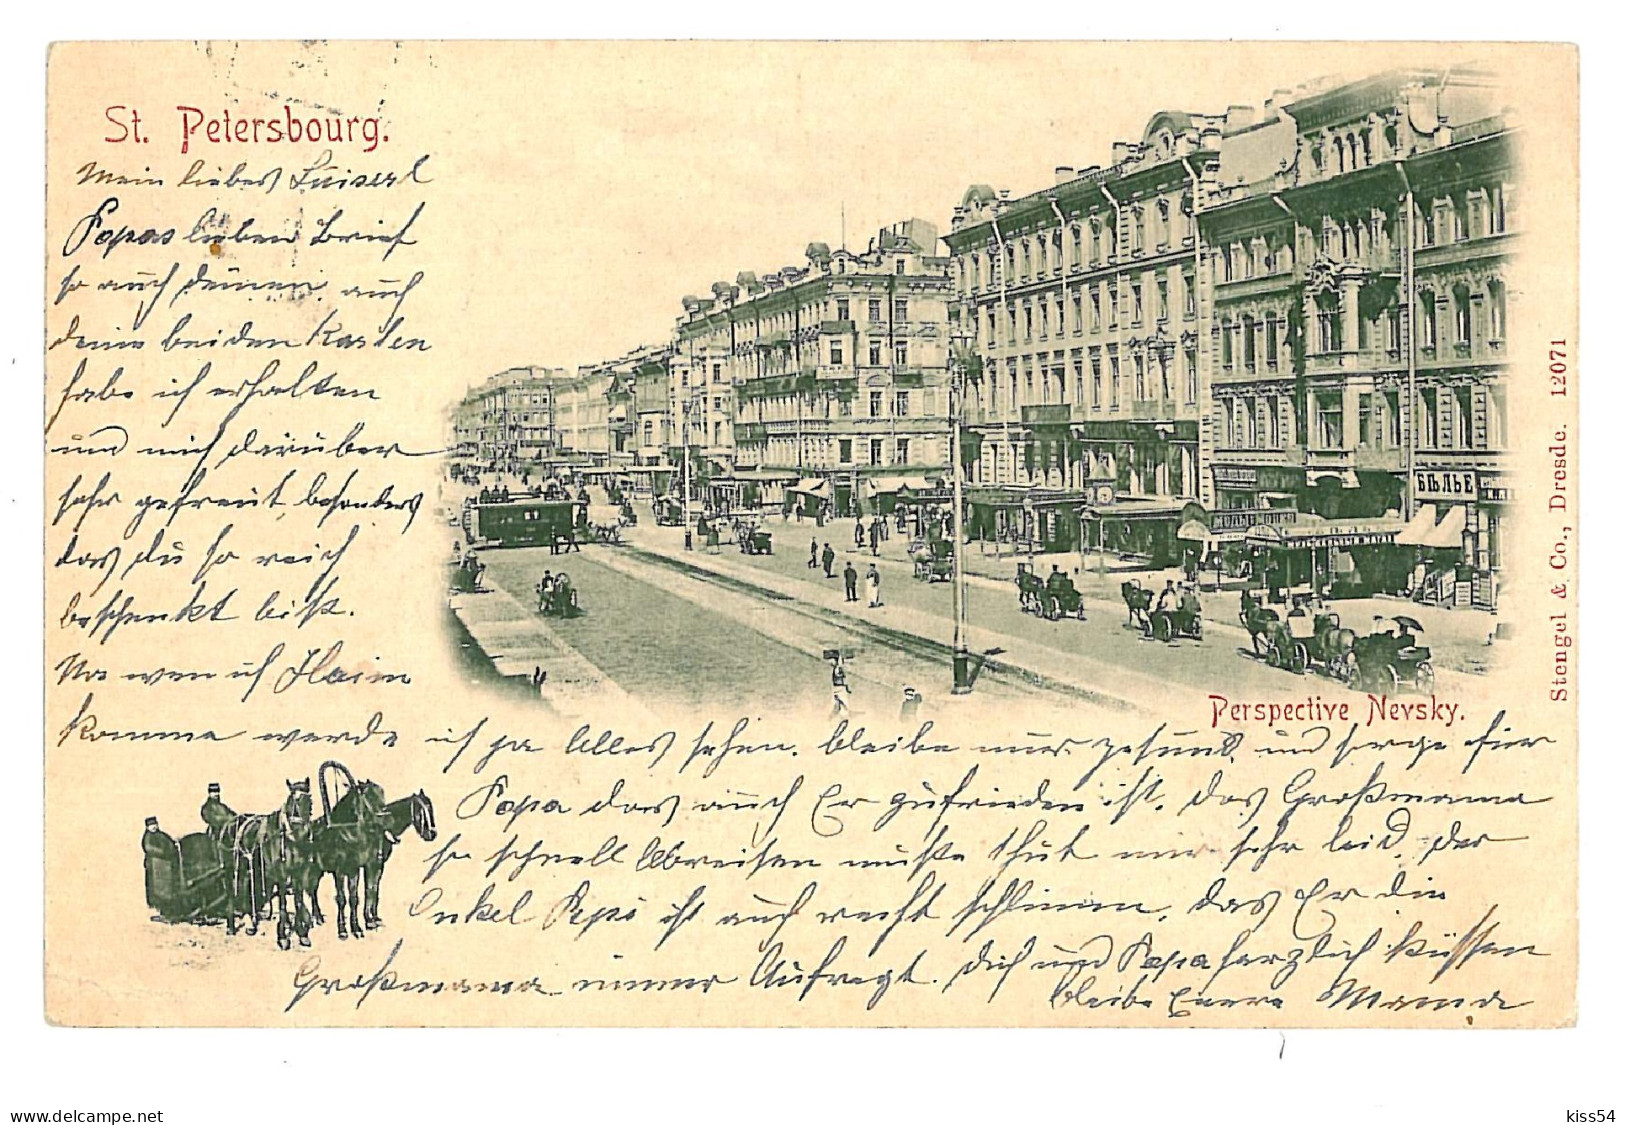 St. Petersbourg.
Mein liebes Luiserl
Papas lieben Brief
so auch deinen, auch
deine beiden Karten
habe ich erhalten
und mich darüber
sehr gefreut, besonders
das du so reich
beschenkt bist.
Na wen ich Haim
komme werde ich ja Alles sehen. bleibe nur gesund, und sorge für
Papa das auch Er zufrieden ist. Das Großmama
so schnell Abreisen mußte thut mir sehr leid, der
Onkel Pepi ist auch recht schlimm, das Er die
Großmama immer Aufregt. Dich und Papa herzlich küssen
bleibe Euere Mama
Perspective Nevsky.
Stengel & Co., Dresde. 12071
БѢЛЬЕ
delcampe.net
kiss54